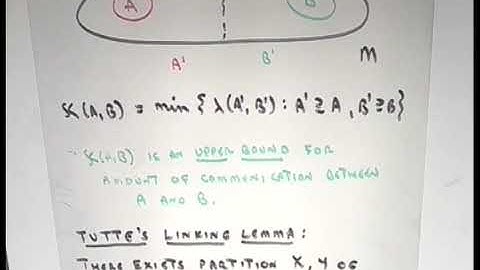 A B
A' B' M
κ(A,B) = min { λ(A',B') : A' ⊇ A , B' ⊇ B}
κ(A,B) IS AN UPPER BOUND FOR
AMOUNT OF COMMUNICATION BETWEEN
A AND B.
TUTTE'S LINKING LEMMA :
THERE EXISTS PARTITION X, Y OF